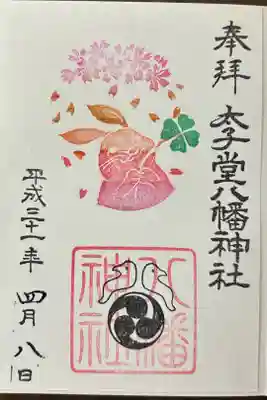 奉拝
太子堂八幡神社
八幡
神社
平成三十一年 四月 八日